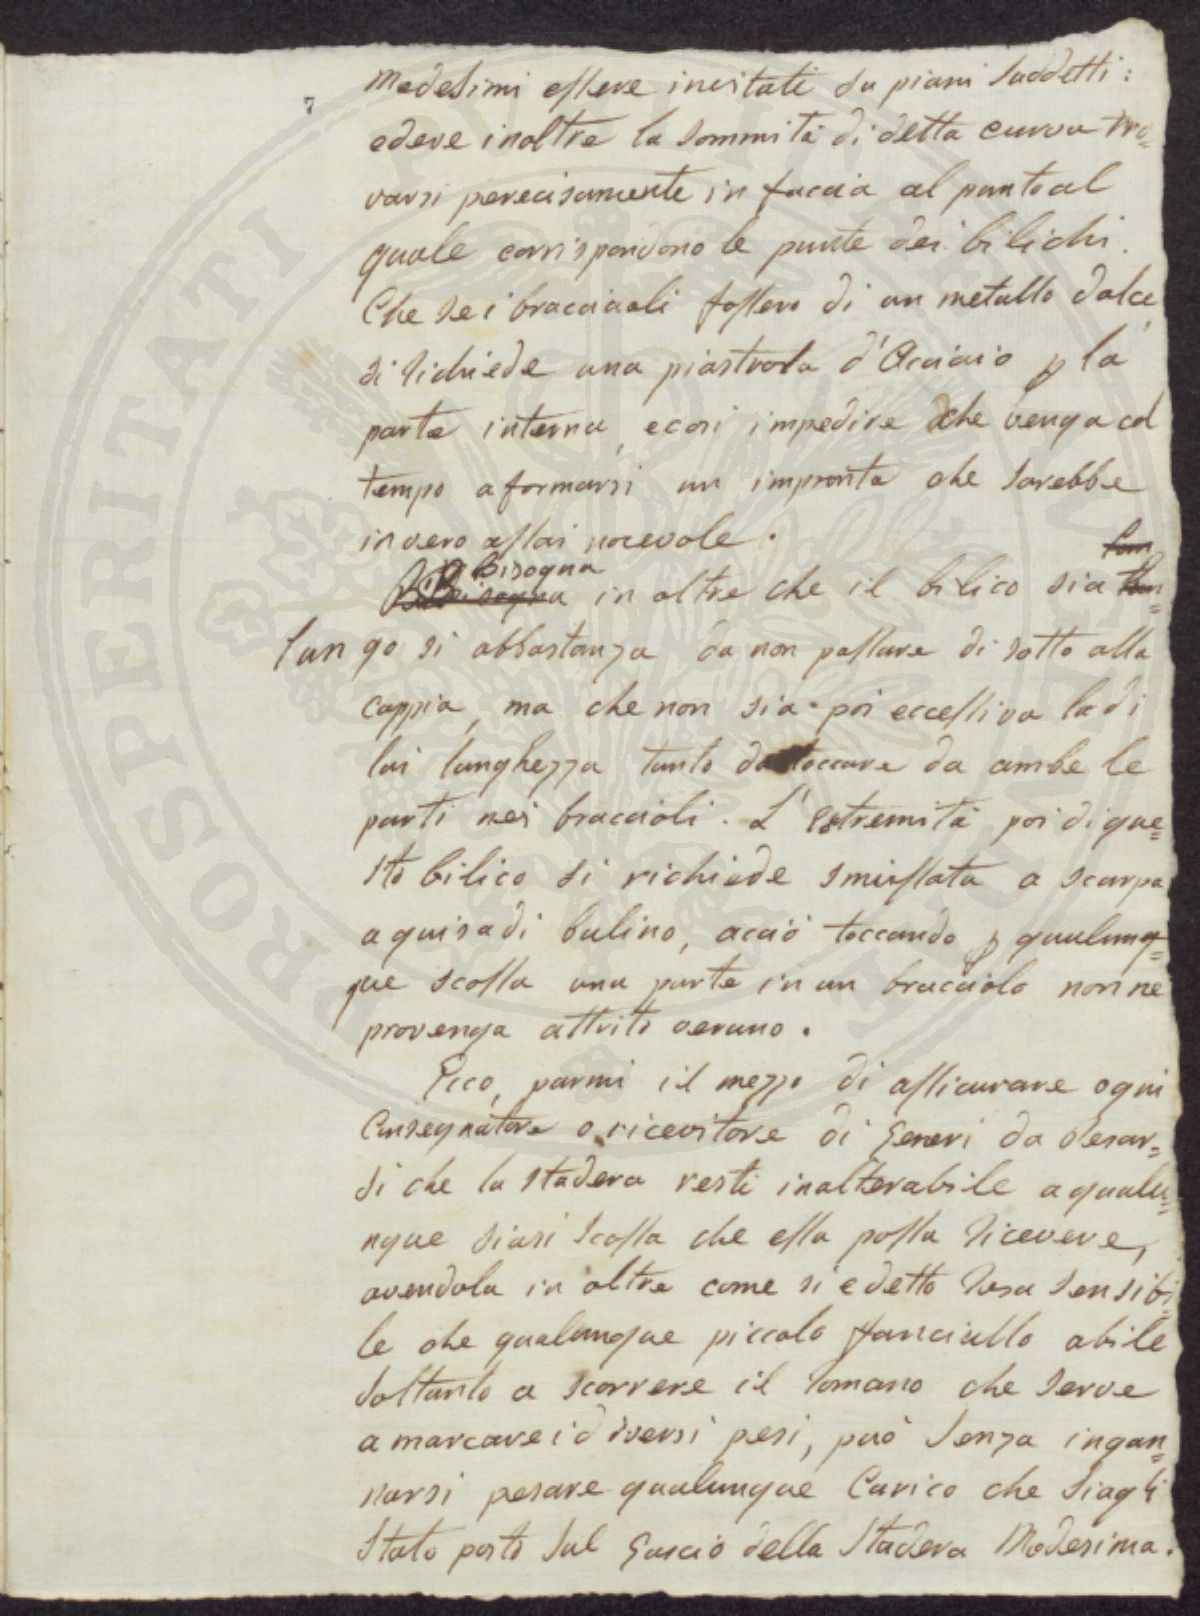 7
Medesimi essere incitati da piani suddetti:
edeve inoltre la sommità di detta curva tro=
varsi perecisamente in faccia al punto al
quale corrispondono le punte dei bilichi.
Che se i bracciaoli fossero di un metallo dolce,
si richiede una piastrola d'Acciaio p la
parte interna, ecosi impedire che venga col
tempo a formarsi un impronta che sarebbe
invero assai nocevole.
Bisogna
in oltre che il bilico sia
lungo si abbastanza da non passare di sotto alla
cappia, ma che non sia poi eccessiva la di
lui lunghezza tanto da toccare da ambe le
parti nei braccioli. L'Estremità poi di que=
sto bilico si richiede smussata a scarpa
a guisa di bulino, acciò toccando p qualunq=
que scossa una parte in un bracciolo non ne
provenga attrito veruno.
Ecco, parmi il mezzo di assicurare ogni
Consegnatore o ricevitore di Generi da pesar=
si che la stadera resti inalterabile a qualu=
nque siasi scossa che essa possa ricevere,
avendola in oltre come si e detto resa sensibi=
le che qualunque piccolo fanciullo abile
soltanto a scorrere il romano che serve
a marcare i diversi pesi, può senza ingan=
narsi pesare qualunque Carico che siagli
stato posto sul Guscio della Stadera Medesima.
PROSPERITATI PUBLICAE